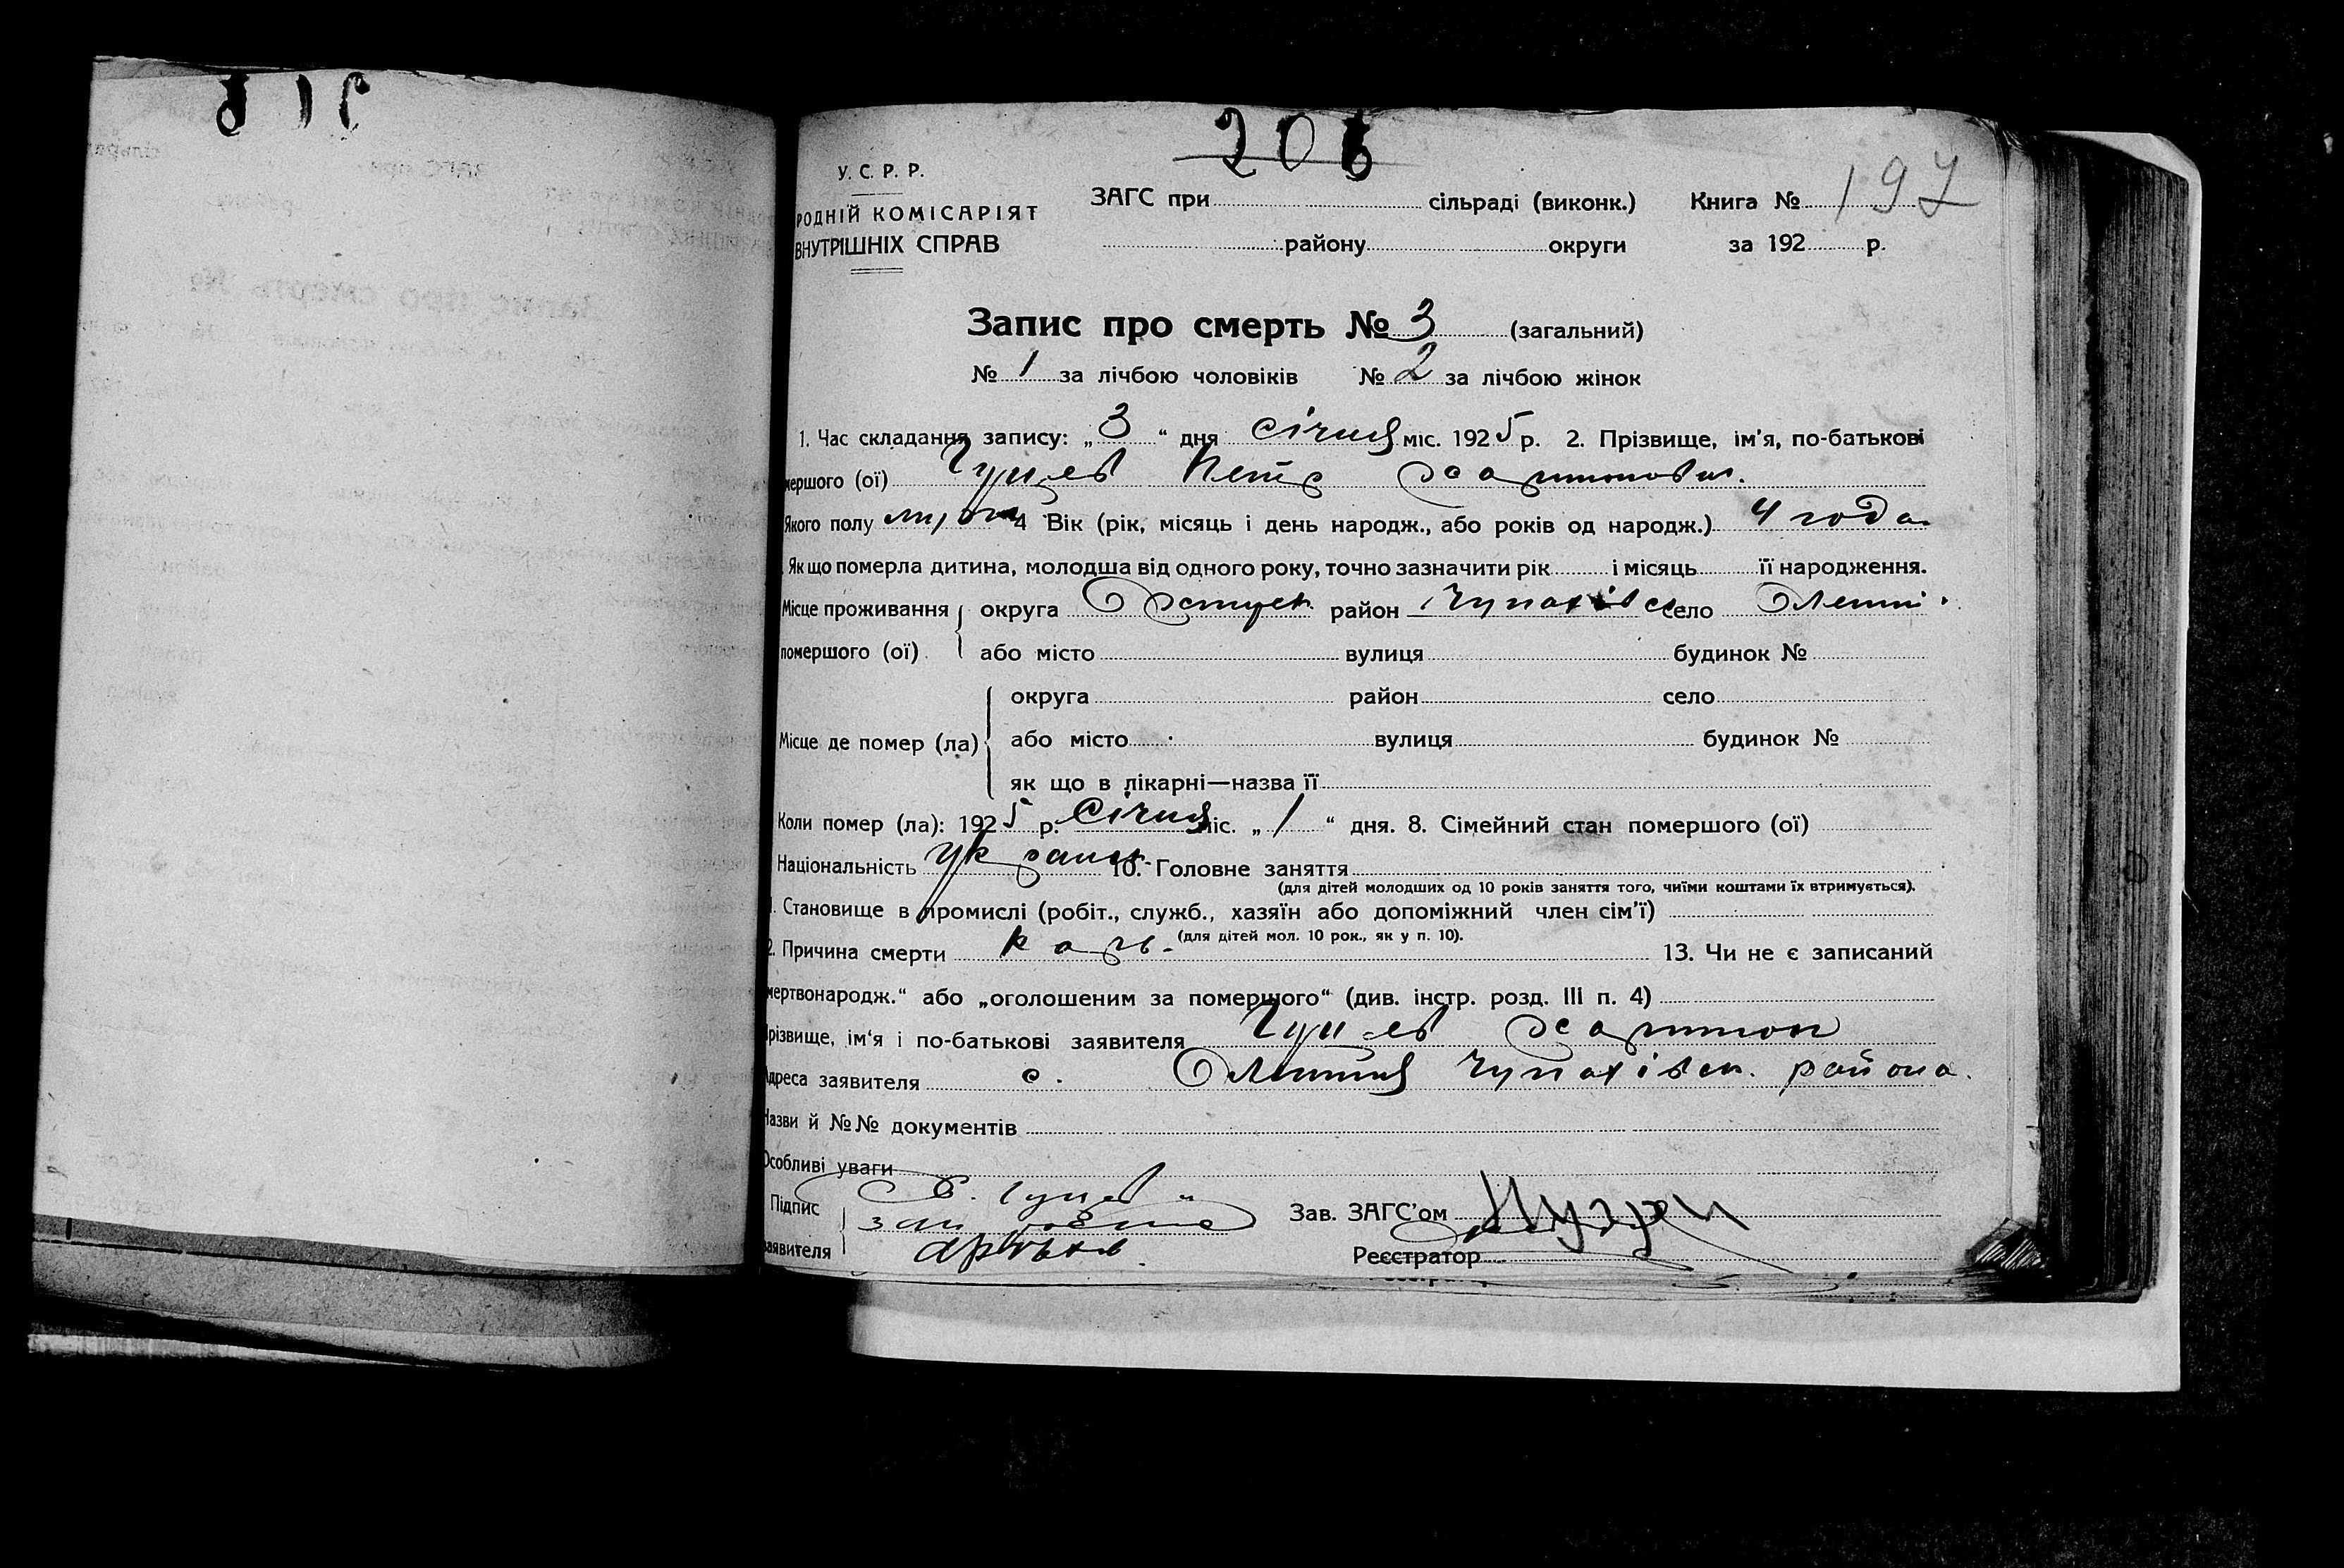 206
197
У. С. Р. Р.
РОДНІЙ КОМІСАРІЯТ
ВНУТРІШНІХ СПРАВ
ЗАГС при сільраді (виконк.) Книга №
району округи за 192 р.
Запис про смерть № 3 (загальний)
№ 1 за лічбою чоловіків № 2 за лічбою жінок
1. Час складання запису: „3“ дня січня міс. 1925 р. 2. Прізвище, ім'я, по-батькові
мершого (ої) Гуцев Петр Харитонович.
Якого полу 4 Вік (рік, місяць і день народж., або років од народж.) 4 года
Як що померла дитина, молодша від одного року, точно зазначити рік і місяць її народження.
Місце проживання округа район Чупахівс село Олешні
помершого (ої) або місто вулиця будинок №
округа район село
Місце де помер (ла) або місто вулиця будинок №
як що в лікарні—назва її
Коли помер (ла): 1925 р. Січня міс. „1“ дня. 8. Сімейний стан помершого (ої)
Національність Украин. 10. Головне заняття
(для дітей молодших од 10 років заняття того, чиїми коштами їх втримується).
1. Становище в промислі (робіт., служб., хазяїн або допоміжний член сім'ї)
(для дітей мол. 10 рок., як у п. 10).
2. Причина смерти корь. 13. Чи не є записаний
мертвонародж.“ або „оголошеним за помершого“ (див. інстр. розд. III п. 4)
різвище, ім'я і по-батькові заявителя Гуцев Харитон
Адреса заявителя с. Олешня Чупахівск. района.
Назви й №№ документів
Особливі уваги
Підпис Гуцев
заявителя
Зав. ЗАГС'ом
Реєстратор